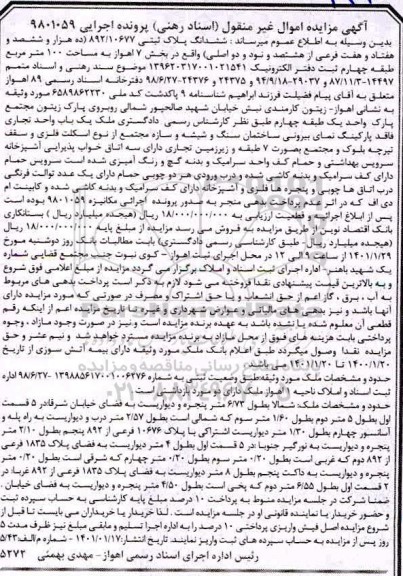 آگهی مزایده اموال غیر منقول (اسناد رهنی) پرونده اجرایی ۹۸۰۱۰۵۹
بدین وسیله به اطلاع عموم میرساند : ششدانگ پلاک ثبتی ۸۹۲/۱۰۶۷۷ (ده هزار و ششصد و
هفتاد و هفت فرعی از هشتصد و نود و دو اصلی) واقع در بخش ۷ اهواز به مساحت ۱۰۰ متر مربع
طبقه چهارم ثبت دفتر الکترونیک ۱۳۹۶۲۰۳۱۷۰۰۱۰۲۱۵۴۱ موضوع سند رهنی و اسناد متمم
۱۴۴۹۷-۸۷/۱۱/۳ و ۲۹۰۳۷-۹۴/۹/۱۸ و ۲۴۳۷۵ و ۲۴۳۷۶-۹۸/۶/۲۷ دفترخانه اسناد رسمی ۸۹ اهواز
متعلق به آقای پیام فضیلت فرزند ابراهیم شناسنامه ۹ پاکدشت کد ملی ۶۵۸۹۸۶۲۲۳۰ مورد وثیقه
به نشانی اهواز- زیتون کارمندی نبش خیابان شهید صالحپور شمالی روبروی پارک زیتون مجتمع
پارک واحد یک طبقه چهارم طبق نظر کارشناس رسمی دادگستری ملک یک باب واحد تجاری
فاقد پارکینگ نمای بیرونی ساختمان سنگ و شیشه و سازه مجتمع از نوع اسکلت فلزی و سقف
تیرچه بلوک و مجتمع بصورت ۷ طبقه و زیرزمین تجاری دارای سه اتاق خواب پذیرایی آشپزخانه
سرویس بهداشتی و حمام کف واحد سرامیک و بدنه گچ و رنگ آمیزی شده است سرویس حمام
دارای کف سرامیک و بدنه کاشی شده و درب ورودی هر دو چوبی حمام دارای یک عدد توالت فرنگی
درب اتاق ها چوبی و پنجره ها فلزی و آشپزخانه دارای کف سرامیک و بدنه کاشی شده و کابینت ام
دی اف که در اثر عدم پرداخت بدهی منجر به صدور پرونده اجرائی مکانیزه ۹۸۰۱۰۵۹ بوده است
پس از ابلاغ اجرائیه و قطعیت ارزیابی به ۱۸/۰۰۰/۰۰۰/۰۰۰ ریال (هیجده میلیارد ریال) بستانکاری
بانک اقتصاد نوین از طریق مزایده به فروش می رسد مزایده از مبلغ پایه ۱۸/۰۰۰/۰۰۰/۰۰۰ ریال
(هیجده میلیارد ریال طبق کارشناسی رسمی دادگستری) بابت مطالبات بانک روز دوشنبه مورخ
۱۴۰۱/۱/۲۹ از ساعت ۹ الی ۱۲ در محل اجرای ثبت اهواز - کوی نبوت جنب مجتمع قضایی شماره
یک شهید باهنر - اداره اجرای ثبت اسناد و املاک برگزار می گردد مزایده از مبلغ اعلامی فوق شروع
و به بالاترین قیمت پیشنهادی نقدا فروخته می شود لازم به ذکر است پرداخت بدهی های مربوط
به آب ، برق ، گاز اعم از حق انشعاب و یا حق اشتراک و مصرف در صورتی که مورد مزایده دارای
آنها باشد و نیز بدهی های مالیاتی و عوارض شهرداری و غیره تا تاریخ مزایده اعم از اینکه رقم
قطعی آن معلوم شده یا نشده باشد به عهده برنده مزایده است و نیز در صورت وجود مازاد ، وجوه
پرداختی بابت هزینه های فوق از محل مازاد به برنده مزایده مسترد خواهد شد و نیم عشر و حق
مزایده نقدا وصول میگردد طبق اعلام بانک ملک مورد وثیقه دارای بیمه آتش سوزی از تاریخ
۱۴۰۰/۱/۲۰ تا ۱۴۰۱/۱/۲۰ می باشد
حدود و مشخصات ملک مورد وثیقه:طبق وضعیت ثبتی به شماره ۱۳۹۸۸۵۶۱۷۰۰۱۰۰۶۲۷۶-۹۸/۶/۲۷ اداره
ثبت اسناد و املاک ناحیه ۱ اهواز ملک دارای دو مورد بازداشت است
حدود و مشخصات ملک: شمالا بطول ۶/۷۳ متر پنجره و دیواریست به فضای خیابان شرقا:در ۵ قسمت
اول بطول ۵ متر دوم بطول ۱/۶۰ متر سوم که شمالی است بطول ۲/۵۷ متر درب و دیواریست به راه پله و
آسانسور چهارم بطول ۱/۳۰ متر دیواریست اشتراکی با پلاک ۱۰۶۷۶ فرعی از ۸۹۲ پنجم بطول ۲/۱۰ متر
پنجره و دیواریست به نورگیر جنوبا :در ۵ قسمت اول بطول ۴ متر دیواریست به فضای پلاک ۱۸۳۵ فرعی
از ۸۹۲ دوم که غربی است بطول ۰/۲۰ متر سوم بطول ۰/۲۰ متر چهارم که شرقی است بطول ۰/۲۰ متر
پنجره و دیواریست به داکت پنجم بطول ۸ متر دیواریست به فضای پلاک ۱۸۳۵ فرعی از ۸۹۲ غربا: در
۲ قسمت اول بطول ۶/۵۵ متر دوم که پخی است بطول ۴/۵۰ متر پنجره و دیواریست به فضای خیابان .
ضمنا شرکت در جلسه مزایده منوط به پرداخت ۱۰ درصد مبلغ پایه کارشناسی به حساب سپرده ثبت
و حضور خریدار یا نماینده قانونی او در جلسه مزایده است . لذا خریدار یا خریداران می بایست تا قبل از
شروع مزایده اصل فیش واریزی پرداختی ۱۰ درصد را به اداره اجرا تسلیم و مابقی مبلغ نیز ظرف مدت ۵
روز پس از مزایده به حساب سپرده های ثبت واریز نمایند. تاریخ انتشار:۱۴۰۱/۰۱/۱۷ - شماره م‌الف:۵/۴۳
رئیس اداره اجرای اسناد رسمی اهواز - مهدی بهمئی ۵۲۷۲